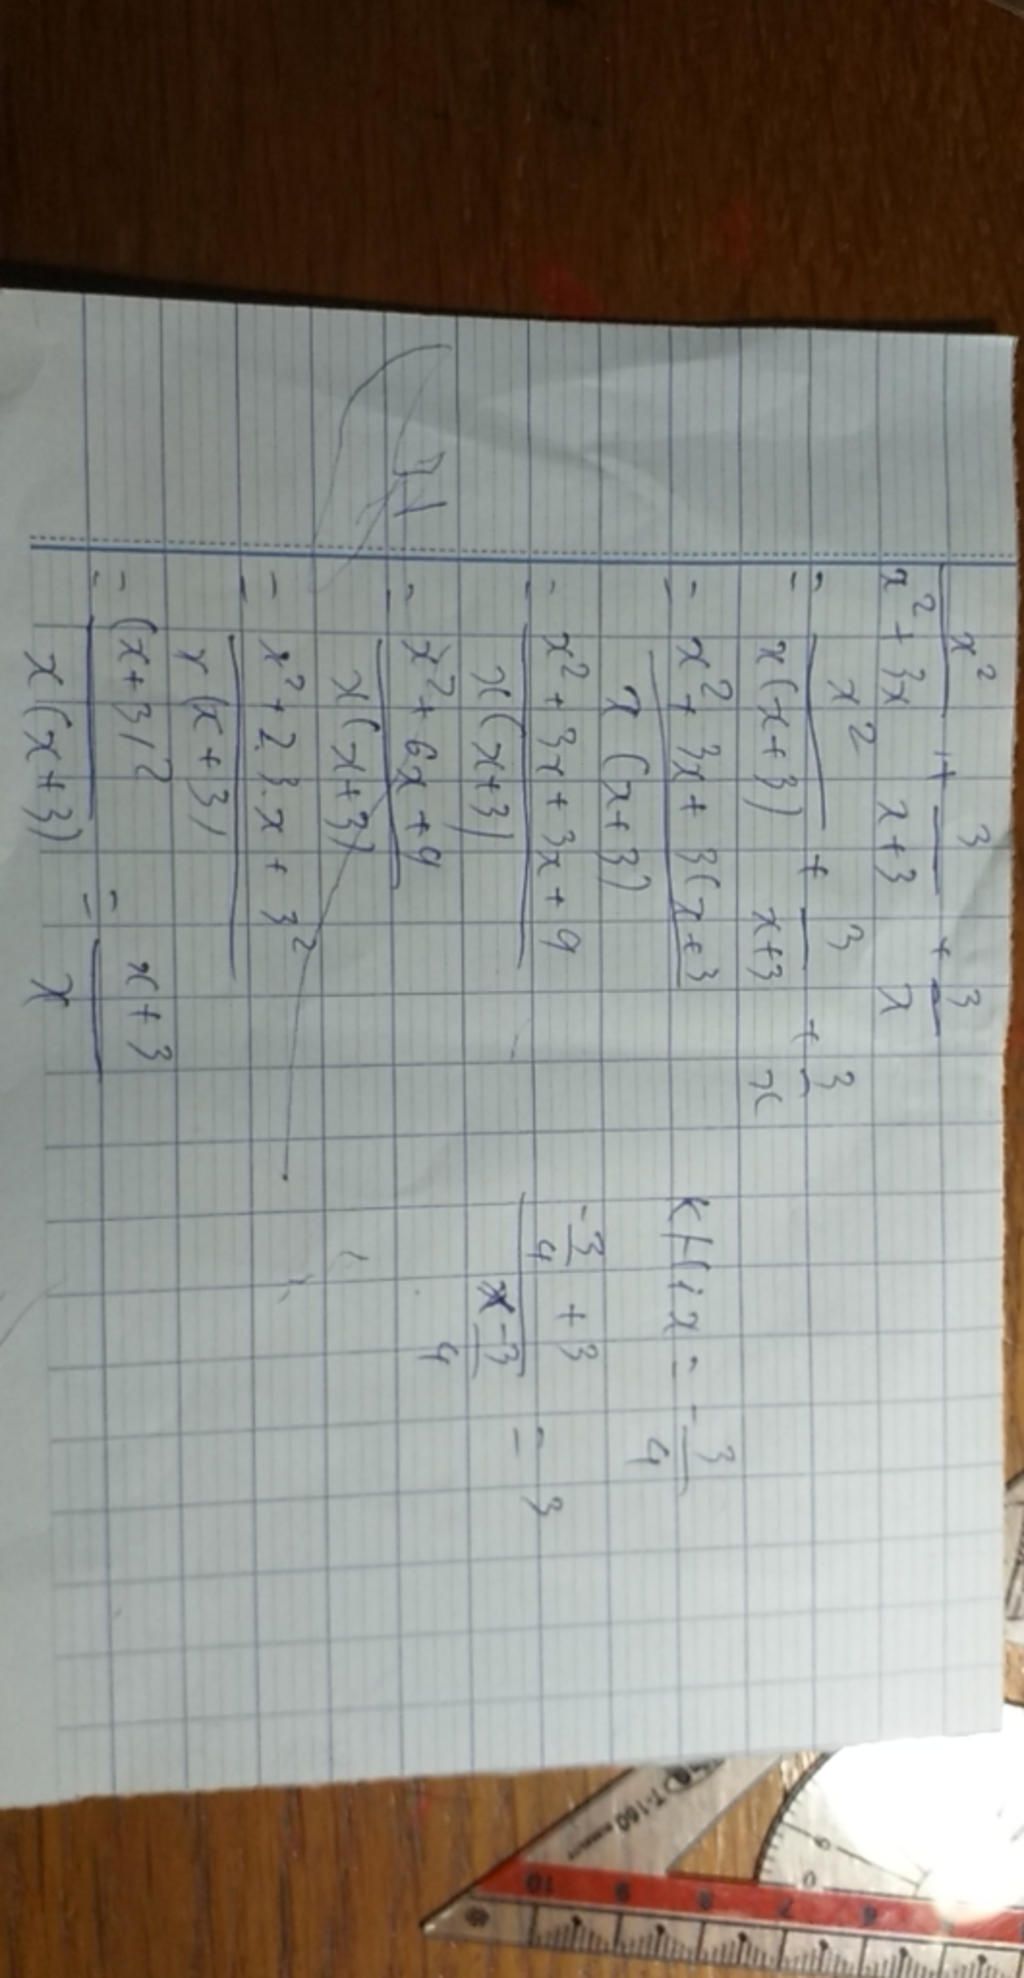 x² / (x² + 3x) + 3 / (x+3) + 3 / x
= x² / x(x+3) + 3 / (x+3) + 3 / x
= (x² + 3x + 3(x+3) / x(x+3)
= (x² + 3x + 3x + 9) / x(x+3)
= (x² + 6x + 9) / x(x+3)
= (x² + 2.3.x + 3²) / x(x+3)
= (x+3)² / x(x+3) = (x+3) / x
Khi x = -3/4
(-3/4 + 3) / (-3/4) = 3
T-160
10 9 8 7 6